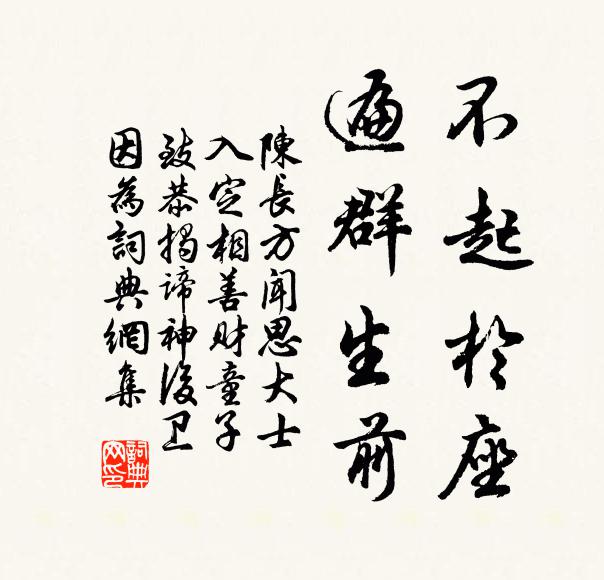 不起於座
遍群生前
陳長方聞思大士
入定相善財童子
致恭揭諦神後卫
因為詞典網集
詞典
网印